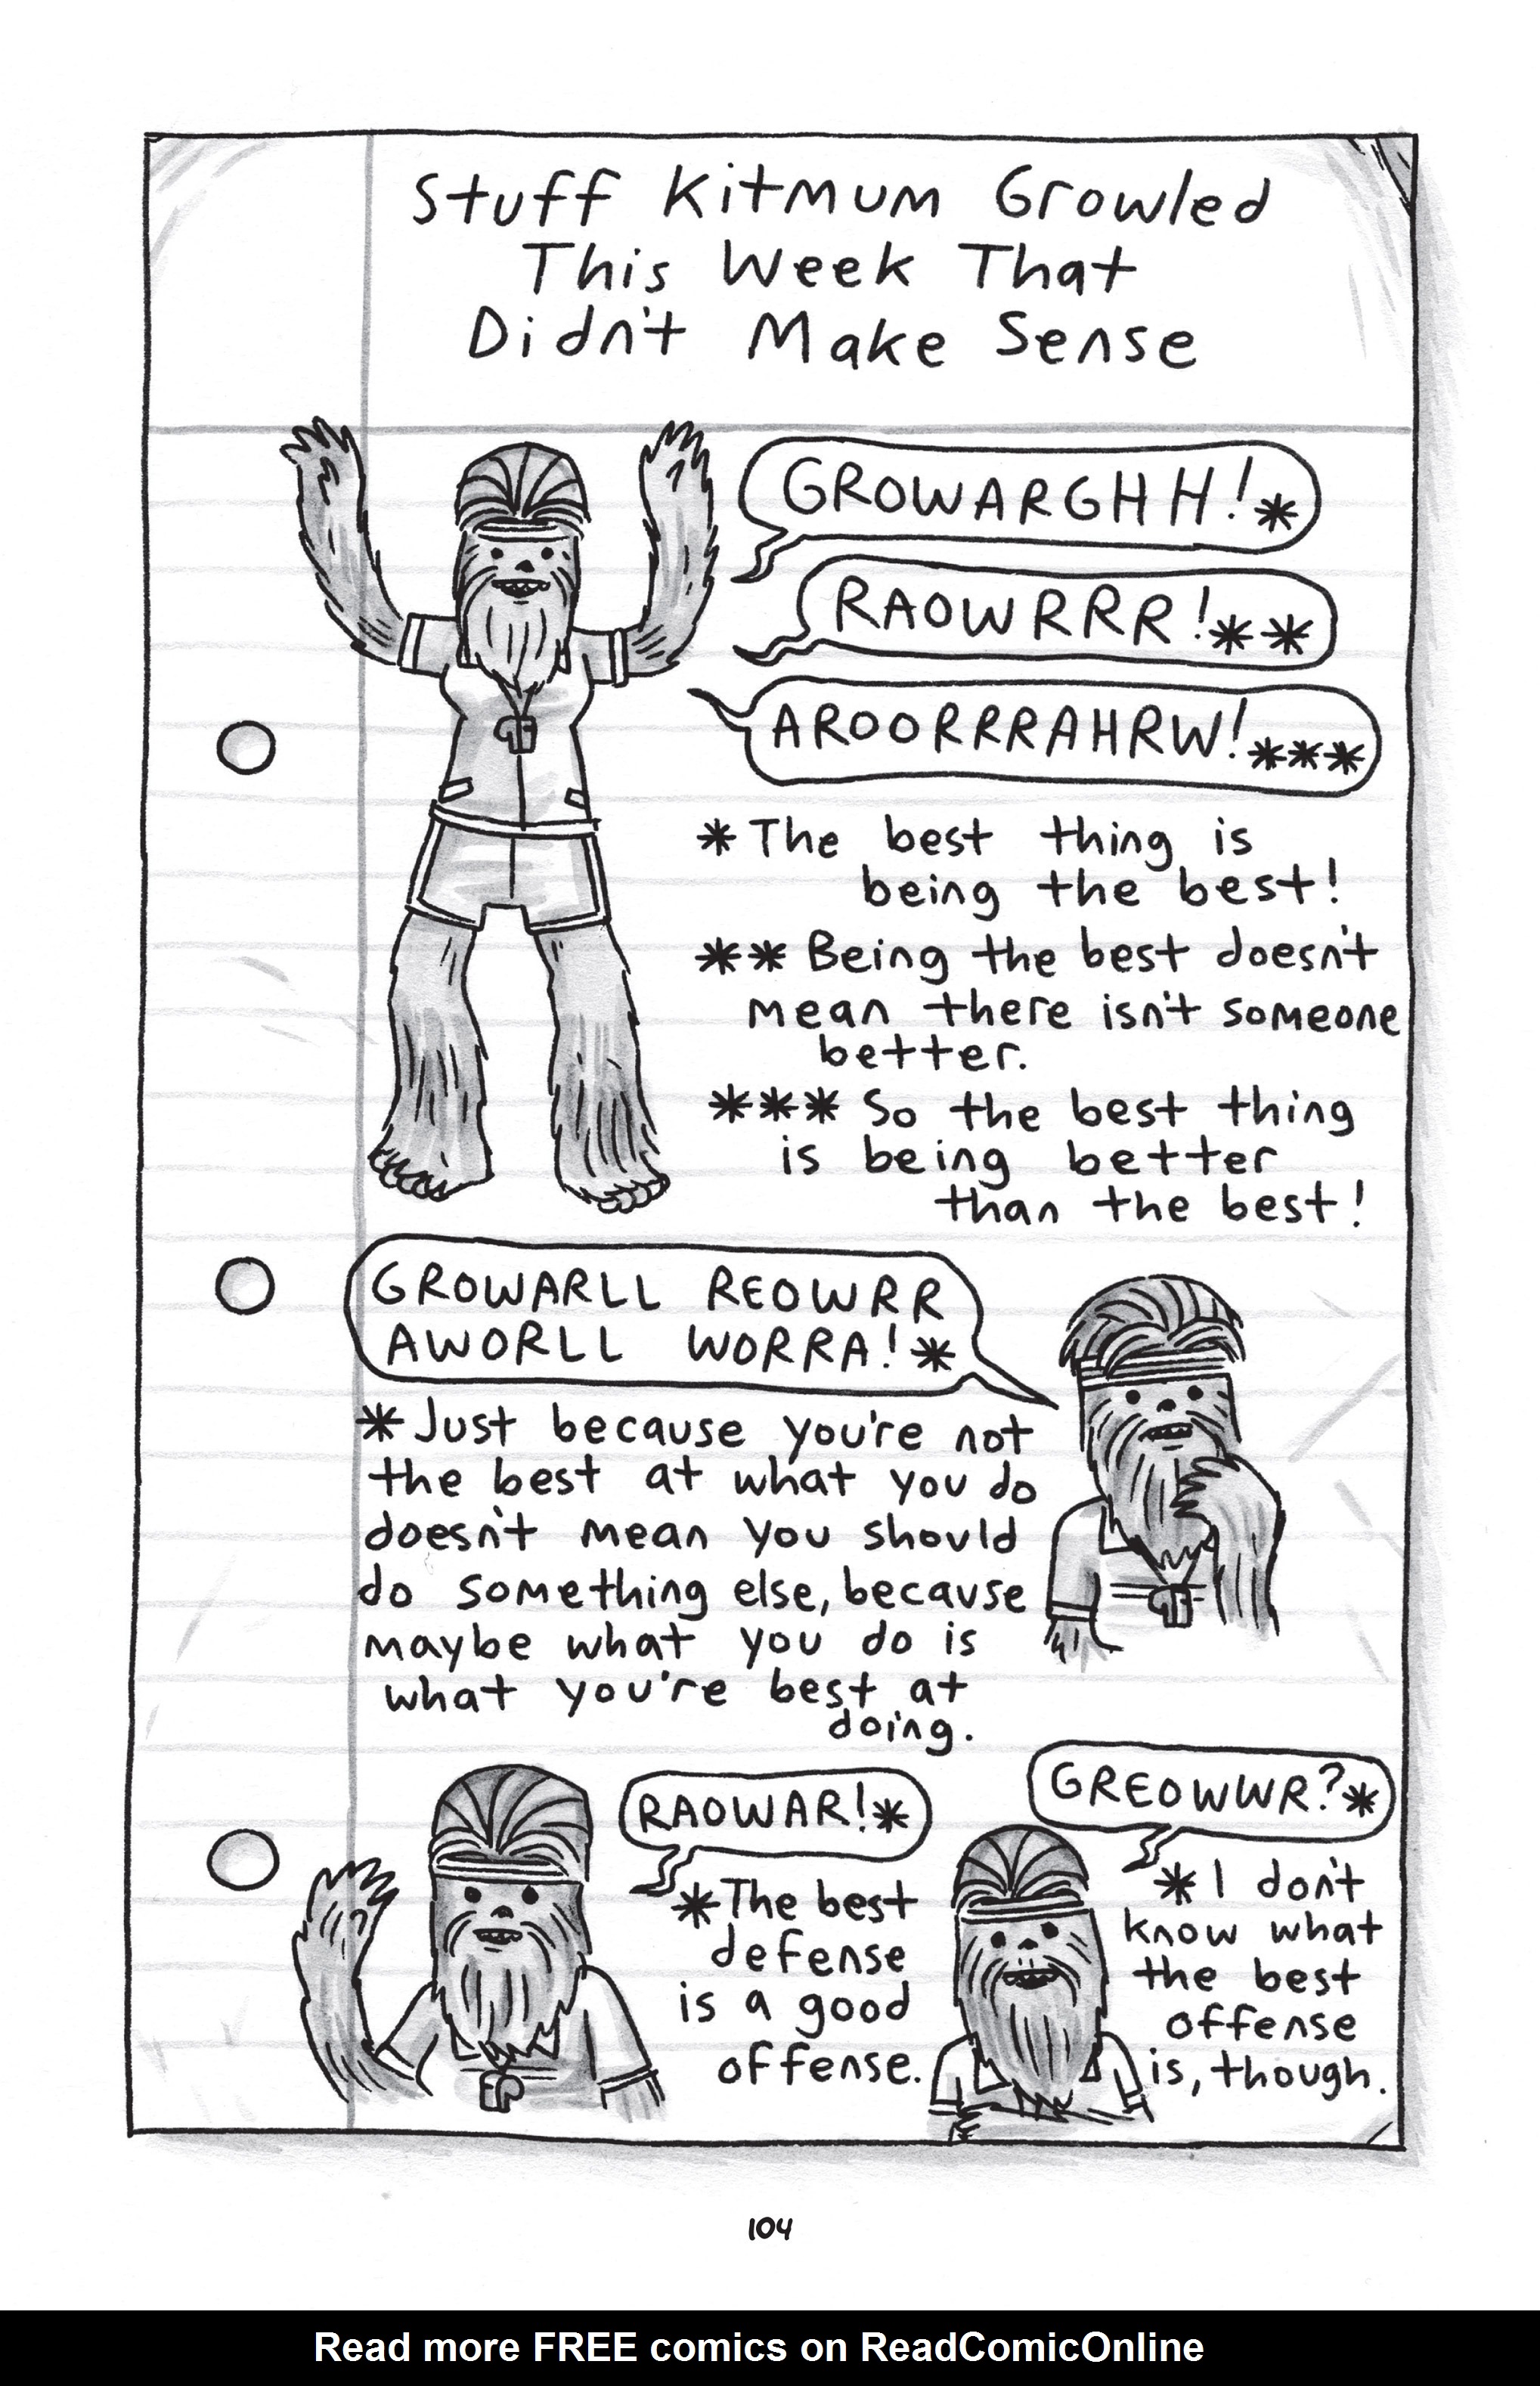 Stuff Kitmum Growled
This Week That
Didn't Make Sense
GROWARGHH!*
RAOWRRR!**
AROORRRAHRW!***
*The best thing is
being the best!
** Being the best doesn't
mean there isn't someone
better.
*** So the best thing
is being better
than the best!
GROWARLL REOWRR
AWORLL WORRA!*
*Just because you're not
the best at what you do
doesn't mean you should
do something else, because
maybe what you do is
what you're best at
doing.
RAOWAR!*
*The best
defense
is a good
offense.
GREOWWR?*
*I don't
know what
the best
offense
is, though.
104
Read more FREE comics on ReadComicOnline